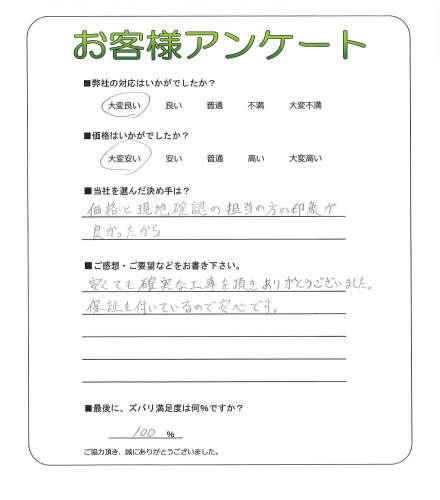 お客様アンケート
■弊社の対応はいかがでしたか？
大変良い 良い 普通 不満 大変不満
■価格はいかがでしたか？
大変安い 安い 普通 高い 大変高い
■当社を選んだ決め手は？
価格と現地確認の担当の方の印象が
良かったから
■ご感想・ご要望などをお書き下さい。
安くても確実な工事を頂きありがとうございました。
保証も付いているので安心です。
■最後に、ズバリ満足度は何％ですか？
100 ％
ご協力頂き、誠にありがとうございました。